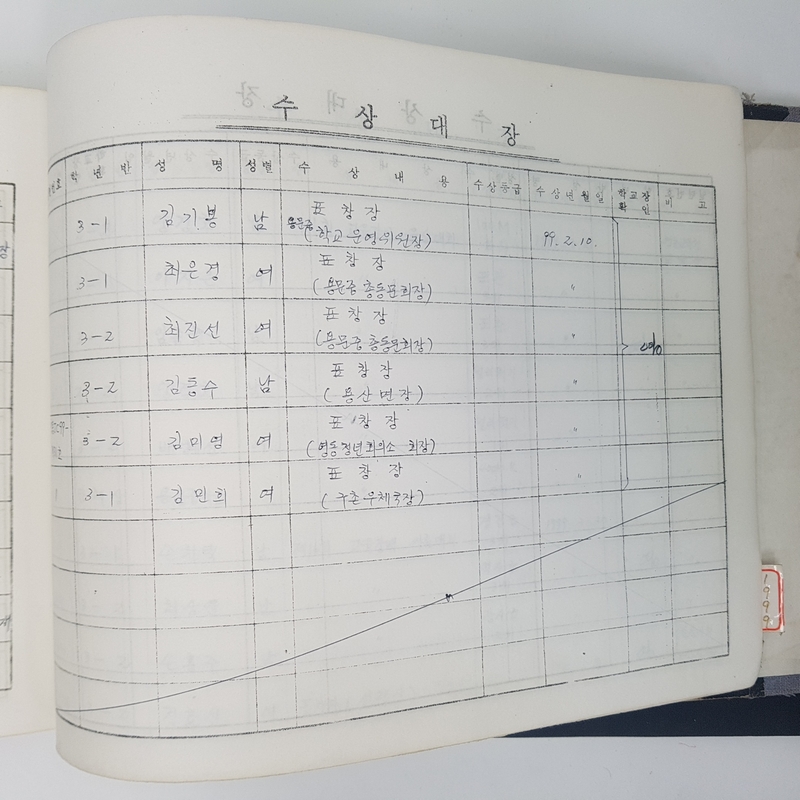 수 상 대 장
번호 학 년 반 성 명 성별 수 상 내 용 수상등급 수상년월일 학교장 확 인 비 고
3-1 김기봉 남 표 창 장 99. 2. 10.
용문중 (학교운영위원장)
3-1 최은경 여 표 창 장 〃
(용문중 총동문회장)
3-2 최진선 여 표 창 장 〃
(용문중 총동문회장)
3-2 김동수 남 표 창 장 〃
(용산면장)
3-2 김미영 여 표 창 장 〃
(영동청년회의소 회장)
3-1 김민희 여 표 창 장 〃
(구촌우체국장)
1999